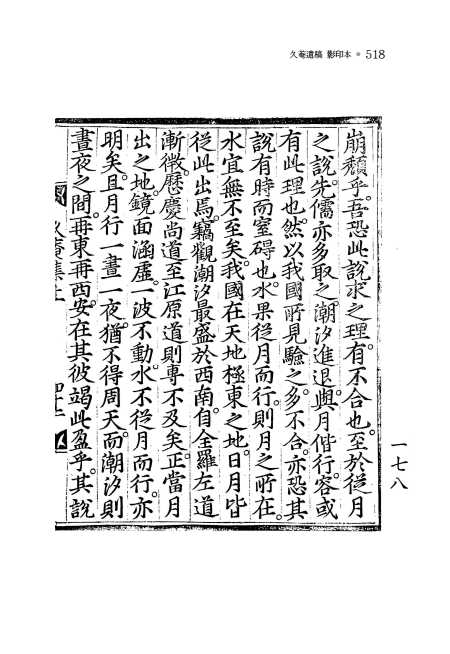 久菴遺稿 影印本 ◦ 518
崩頹乎。吾恐此說求之理。有不合也。至於從月
之說。先儒亦多取之。潮汐進退。與月偕行。容或
有此理也。然以我國所見驗之。多不合。亦恐其
說有時而窒碍也。水果從月而行。則月之所在。
水宜無不至矣。我國在天地極東之地。日月皆
從此出焉。竊觀潮汐最盛於西南。自全羅左道
漸微。歷慶尙道至江原道則專不及矣。正當月
出之地。鏡面涵虛。一波不動。水不從月而行。亦
明矣。且月行一晝一夜。猶不得周天。而潮汐則
晝夜之間。再東再西。安在其彼竭此盈乎。其說
一七八